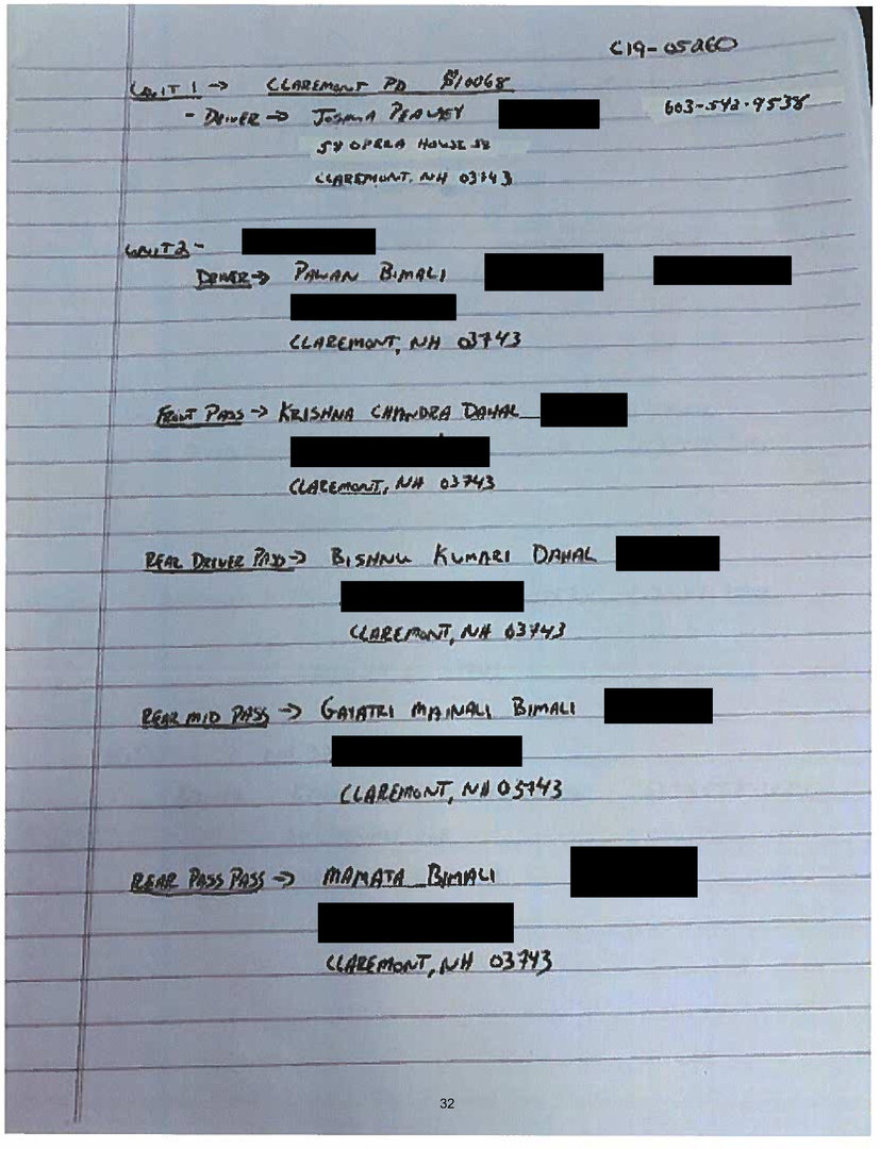 C19-05260
UNIT 1 → CLAREMONT PD
- DRIVER → JOSHUA 603-542-9538
58 OPERA HOUSE SQ
CLAREMONT, NH 03743
UNIT 2 -
DRIVER → PAWAN BIMALI
CLAREMONT, NH 03743
FRONT PASS → KRISHNA CHANDRA DAHAL
CLAREMONT, NH 03743
REAR DRIVER PASS → BISHNU KUMARI DAHAL
CLAREMONT, NH 03743
REAR MID PASS → GAYATRI MAINALI BIMALI
CLAREMONT, NH 03743
REAR PASS PASS → MAMATA BIMALI
CLAREMONT, NH 03743
32